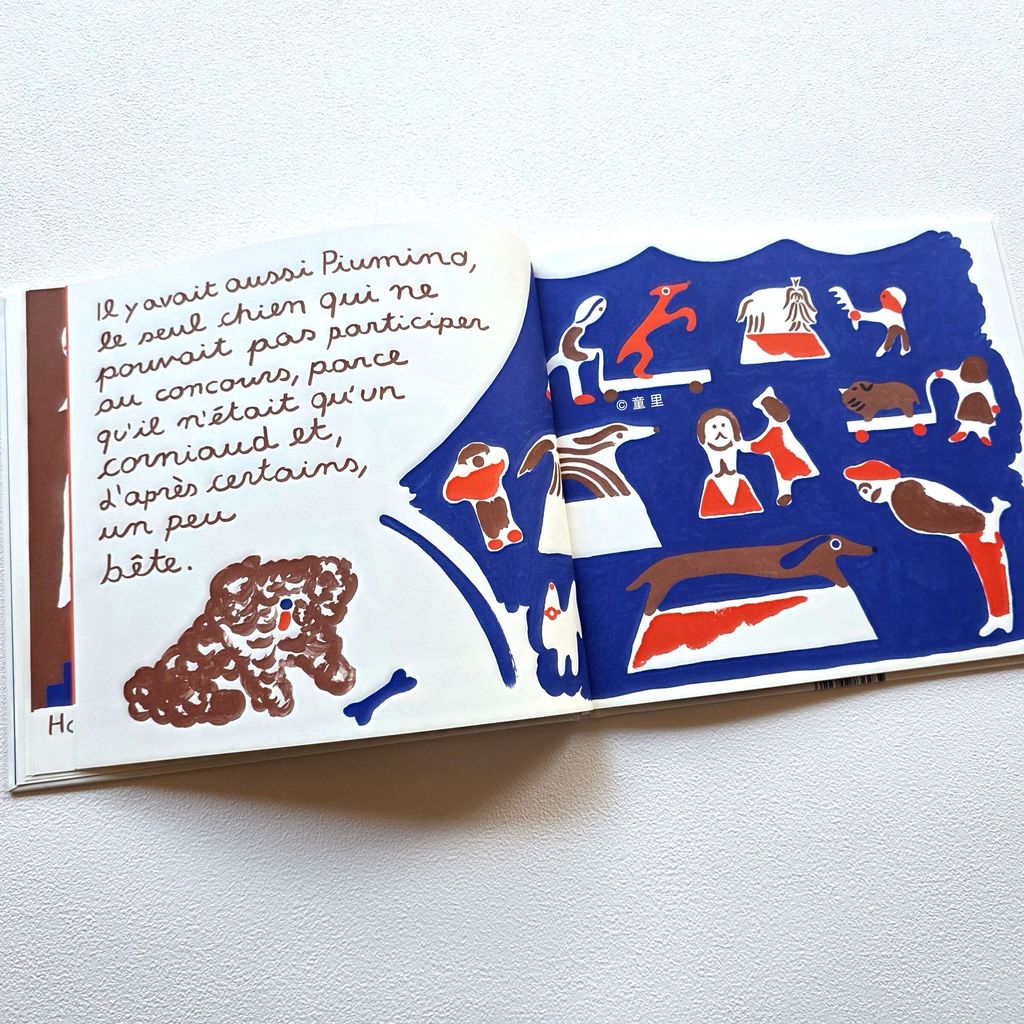 Il y avait aussi Piumino,
le seul chien qui ne
pouvait pas participer
au concours, parce
qu'il n'était qu'un
corniaud et,
d'après certains,
un peu
bête.
© 童里